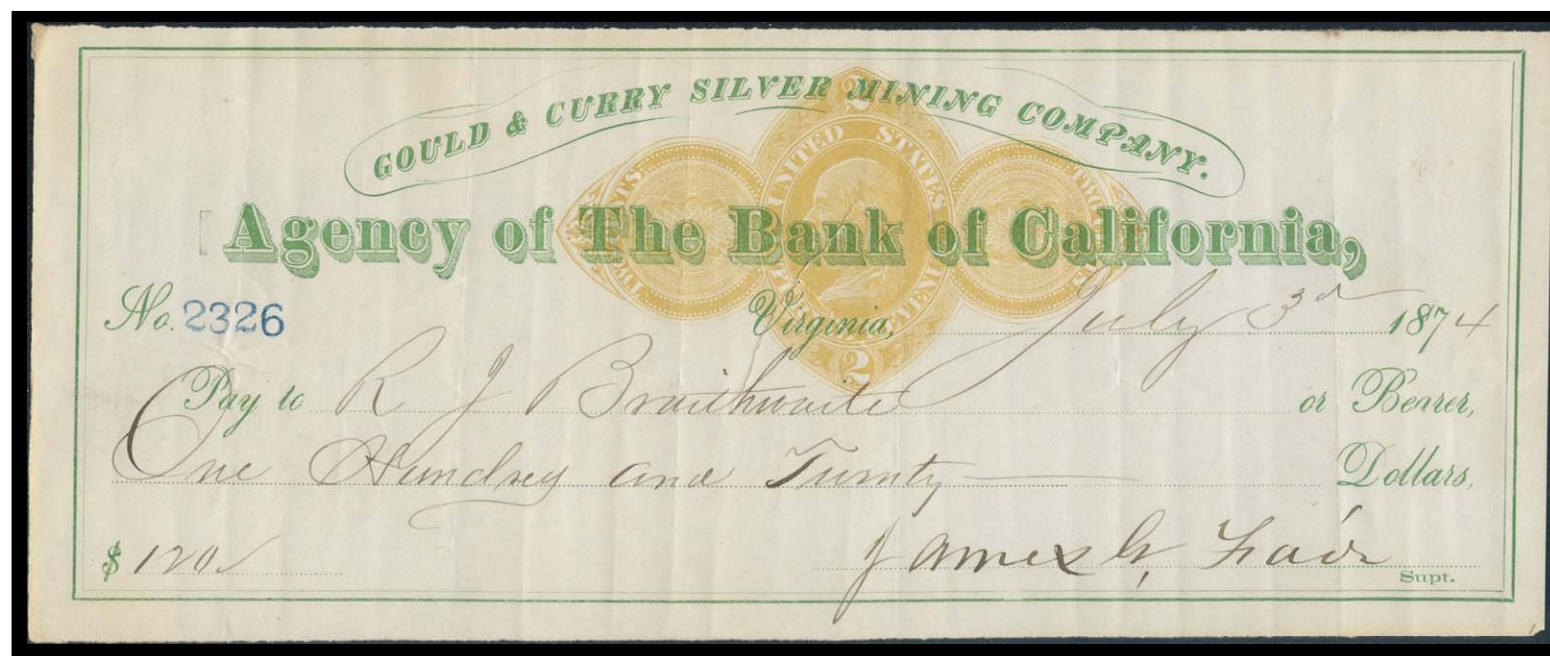 GOULD & CURRY SILVER MINING COMPANY.
2
UNITED STATES
Agency of The Bank of California,
No. 2326
Virginia, July 3d 1874
2
Pay to R J Braithwaite or Bearer,
One Hundred and Twenty Dollars,
$ 120
James G. Fair
Supt.